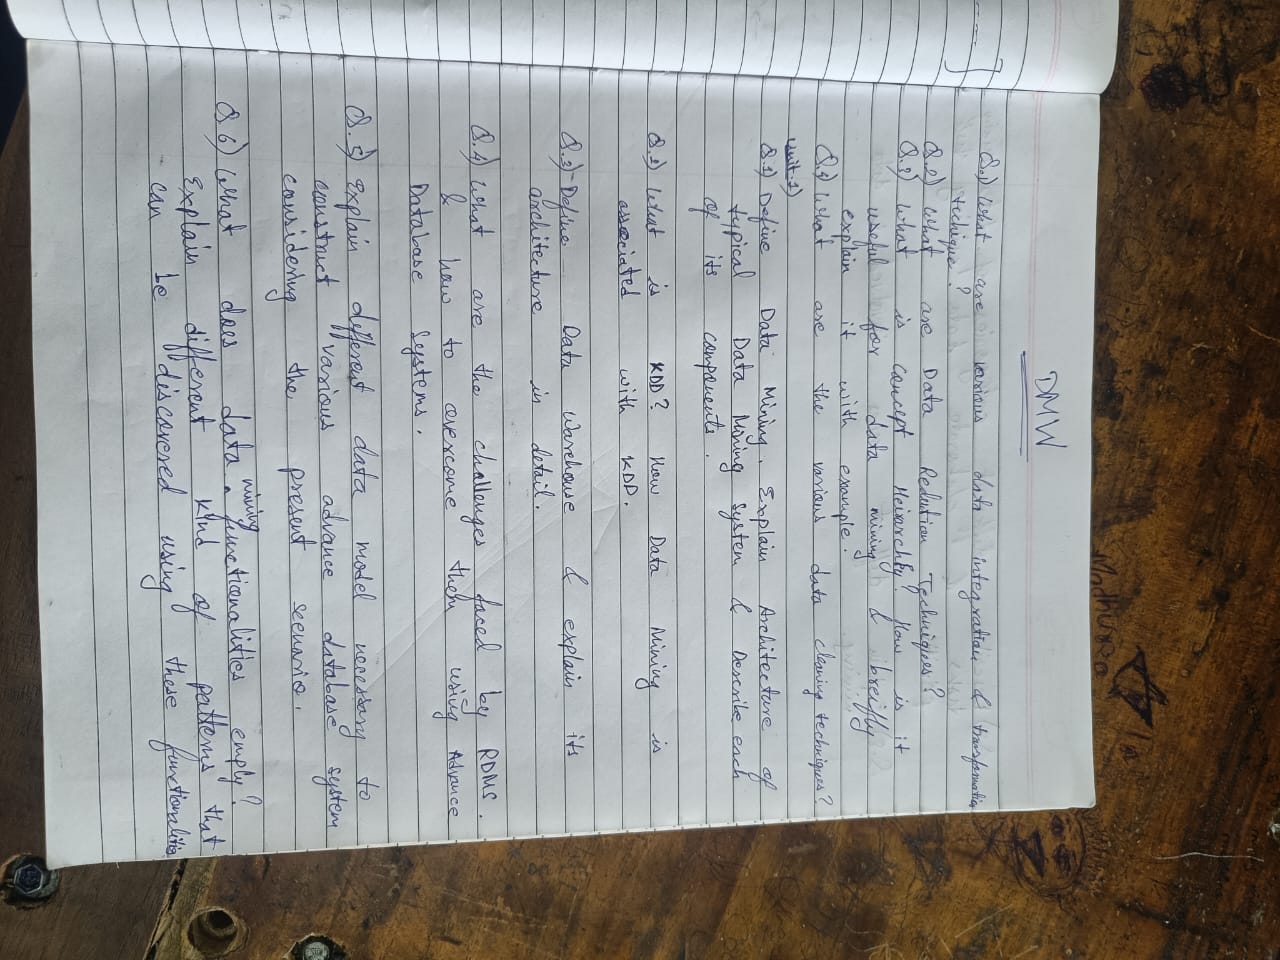 Madhura
DMW
Q.1) What are various data integration & transformation
techique?
Q.2) What are Data Redution Techniques?
Q.3) What is concept Heirarchy? How is it
useful for data mining & breifly
explain it with example.
Q.4) What are the various data cleaning techniques?
Unit-1)
Q.1) Define Data Mining. Explain Architecture of
typical Data Mining system & Describe each
of its components.
Q.2) What is KDD? How Data Mining is
associated with KDD.
Q.3) Define Data Warehouse & explain its
architecture in detail.
Q.4) What are the challenges faced by RDMS.
& how to overcome them using Advance
Database Systems.
Q.5) Explain different data model necessary to
construct various advance database system
considering the present scenario.
Q.6) What does data mining functionalities emply?
Explain different kind of patterns that
can be discovered using these functionalities